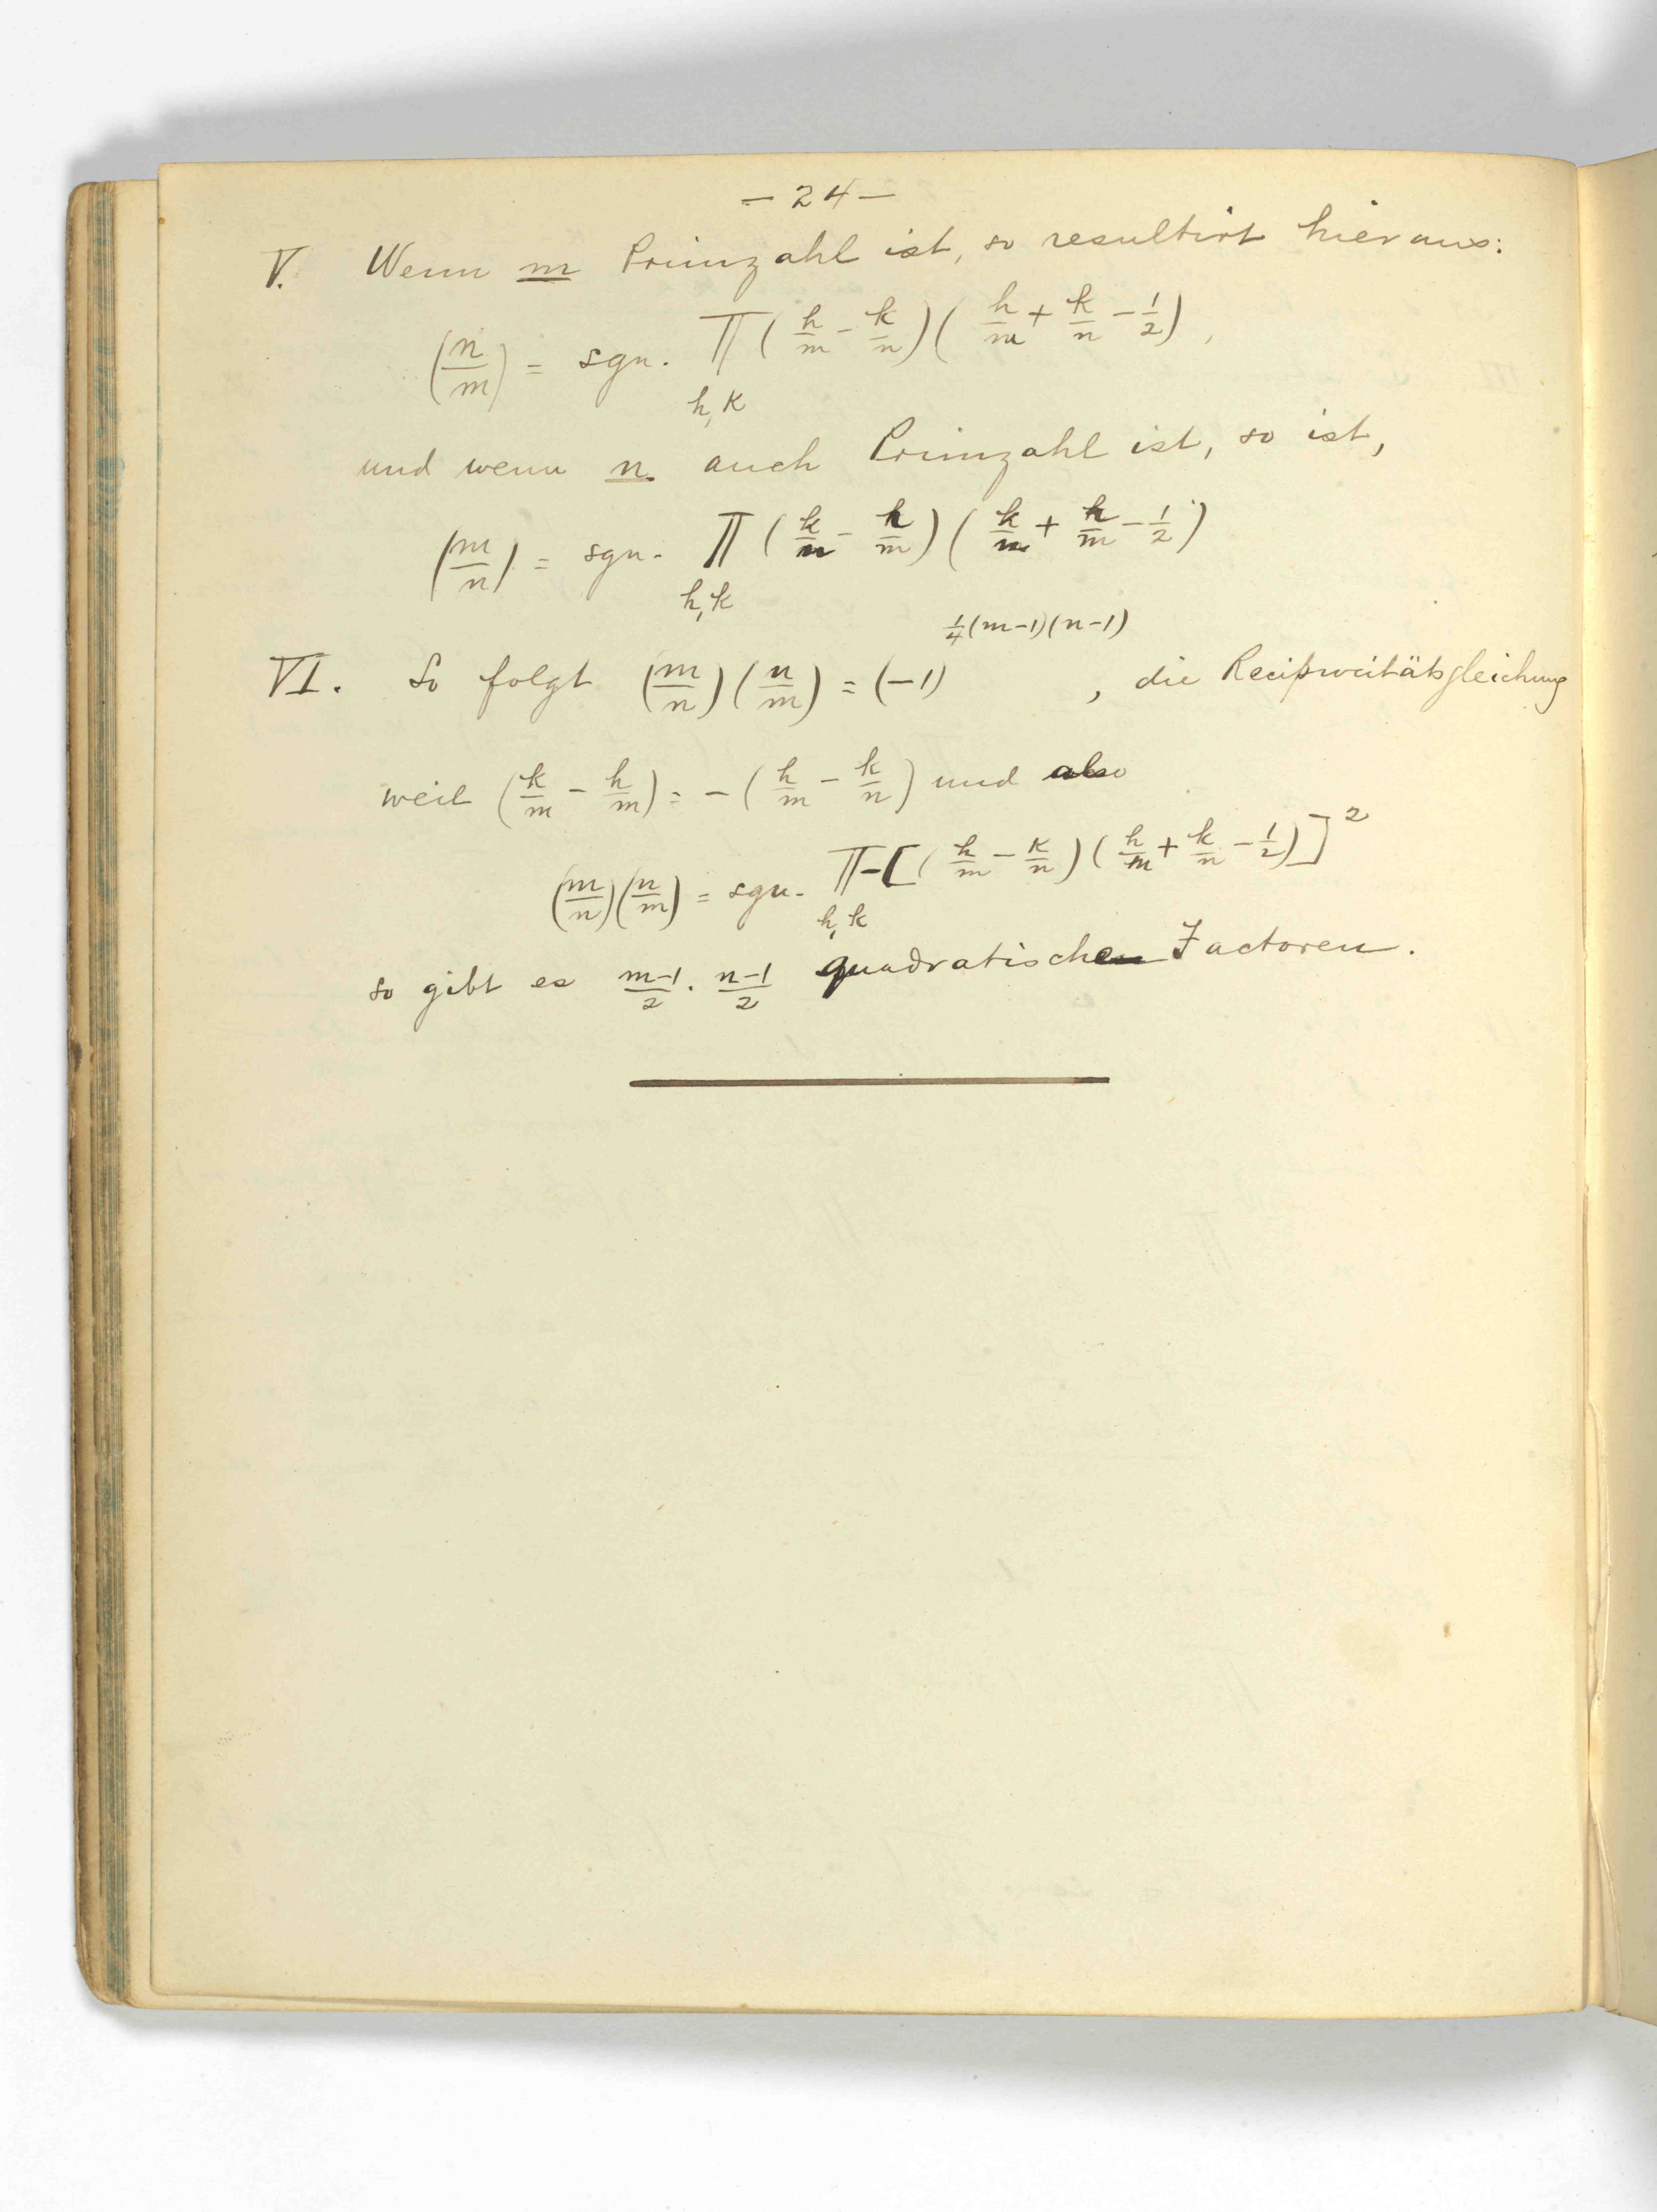 — 24 —
V. Wenn m Primzahl ist, so resultirt hieraus:
(n/m) = sgn. ∏_{h,k} (h/m - k/n)(h/m + k/n - 1/2),
und wenn n auch Primzahl ist, so ist,
(m/n) = sgn. ∏_{h,k} (k/n - h/m)(k/n + h/m - 1/2)
VI. So folgt (m/n)(n/m) = (-1)^{1/4(m-1)(n-1)}, die Reciprocitätsgleichung
weil (k/m - h/m) = -(h/m - k/n) und also
(m/n)(n/m) = sgn. ∏_{h,k} -[(h/m - k/n)(h/m + k/n - 1/2)]^2
so gibt es m-1/2 · n-1/2 quadratischen Factoren.